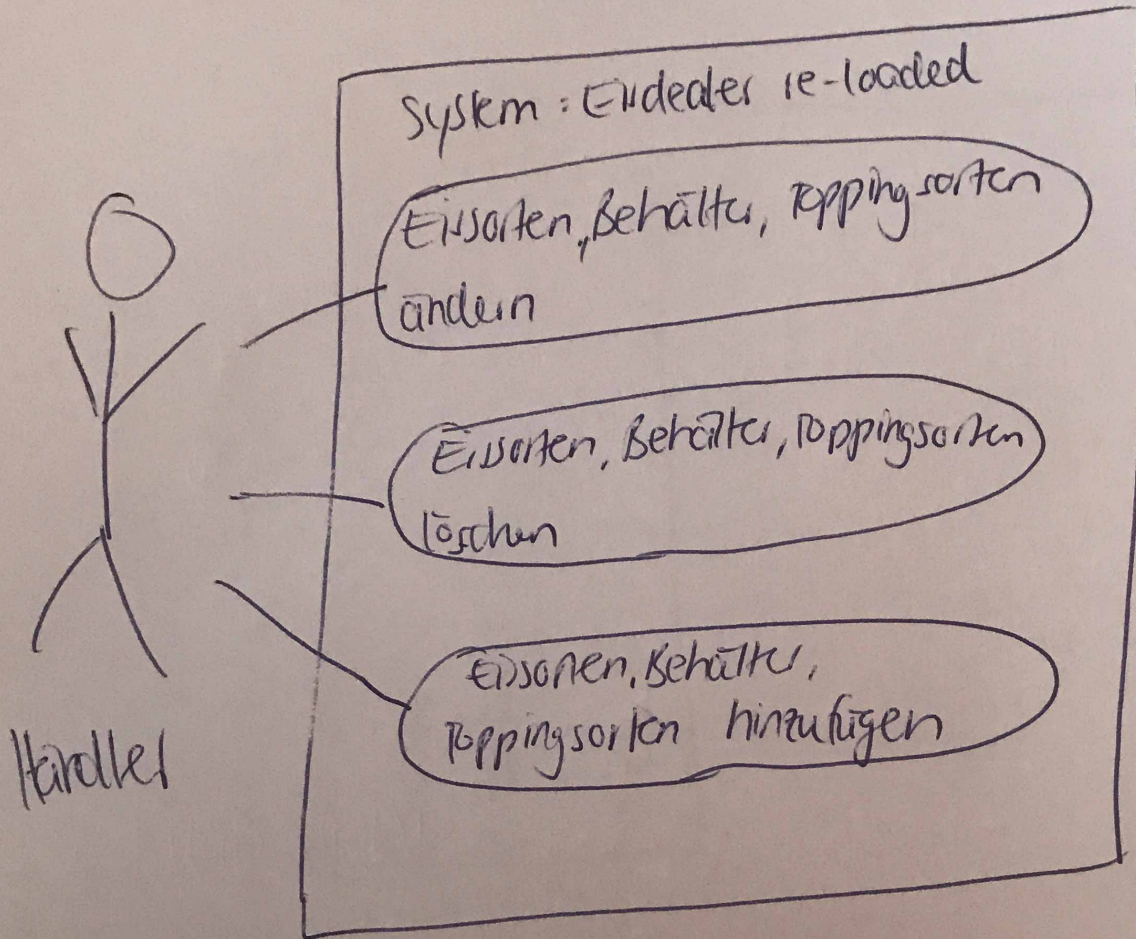 System: Eisdealer re-loaded
Eissorten, Behälter, Toppingsorten
ändern
Eissorten, Behälter, Toppingsorten
löschen
Eissorten, Behälter,
Toppingsorten hinzufügen
Händler